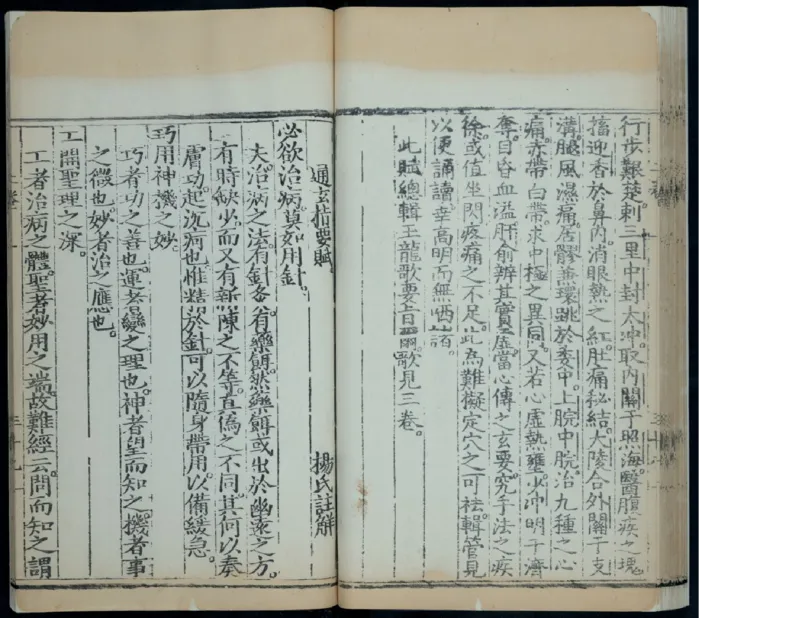 行步艱楚。刺三里中封太冲。取內關于照海。醫腹疾之塊。
搐迎香於鼻內。消眼熱之紅。肚痛秘結。大陵合外關于支
溝。腿風濕痛。居髎兼環跳於委中。上脘中脘。治九種之心
痛。赤帶白帶。求中極之異同。又若心虛熱壅。少冲明于濟
奪。目昏血溢。肝俞辨其實虛。當心傳之玄要。究手法之疾
徐。或值坐閃疼痛之不足。此為難擬定穴之可祛。輯管見
以便誦讀。幸高明而無哂諸。
此賦總輯玉龍歌要旨爾歌見三卷。
通玄指要賦。
楊氏註解
必欲治病。莫如用針。
夫治病之法。有針灸。有藥餌。然藥餌或出於幽遠之方。
有時缺少。而又有新陳之不等。真偽之不同。其何以奏
膚功。起沉疴也。惟精於針。可以隨身帶用。以備緩急。
巧用神機之妙。
巧者功之善也。運者變之理也。神者望而知之。機者事
之微也。妙者治之應也。
工開聖理之深。
工者治病之體。聖者妙用之端。故難經云。問而知之謂